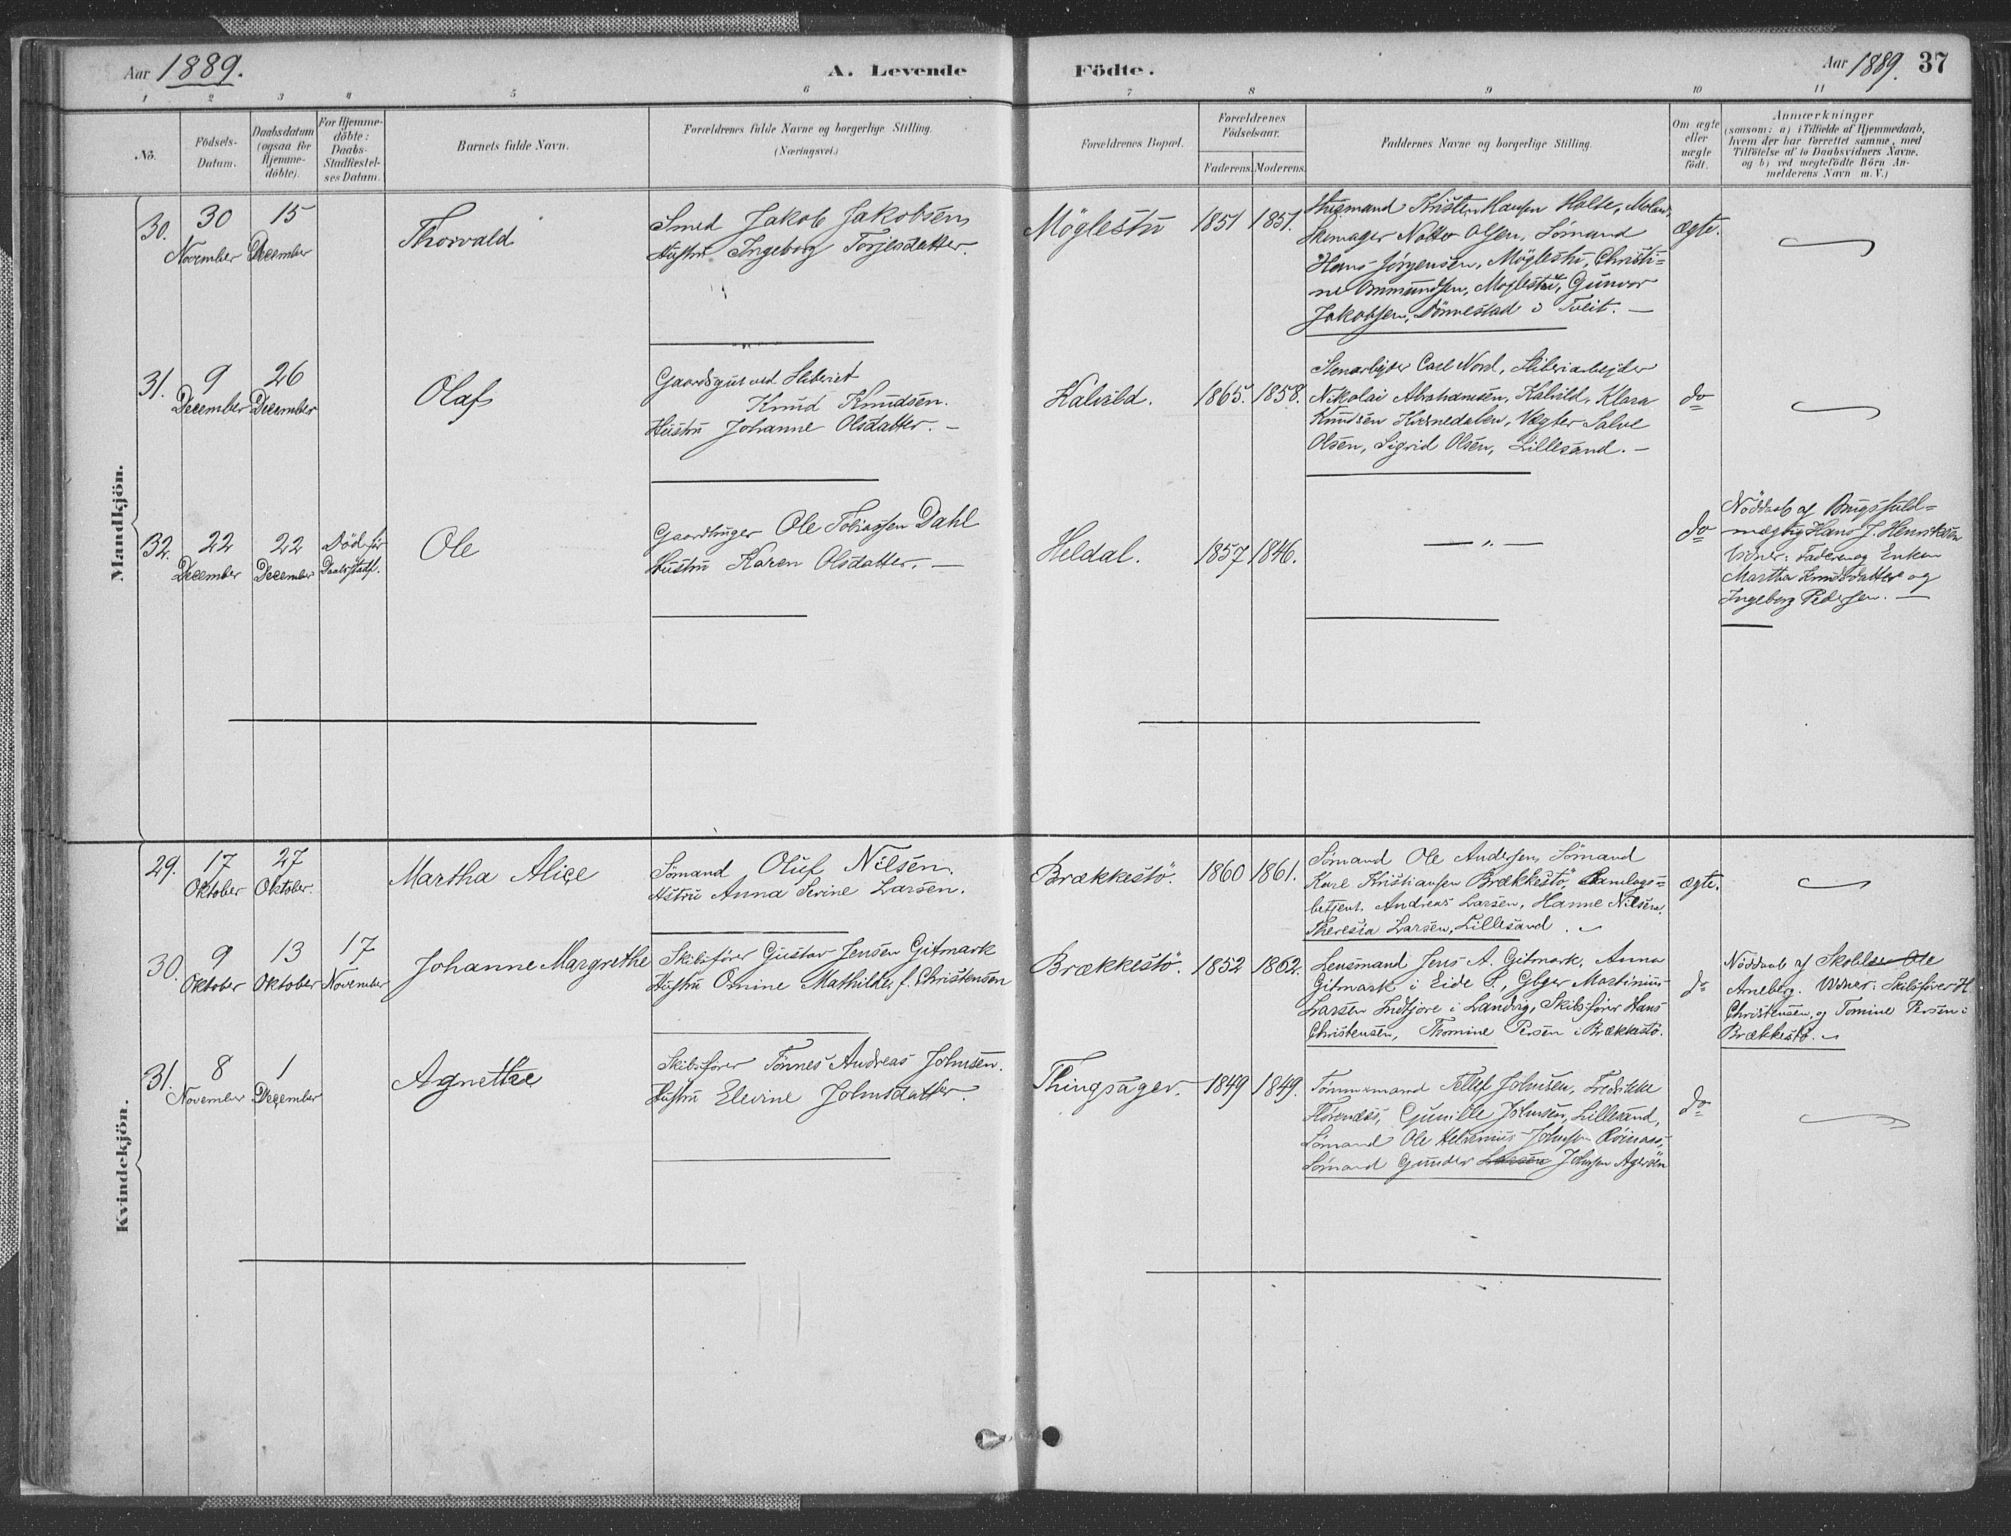 Aar 1889.
A. Levende
Födte.
Aar 1889. 37
1 2 3 4 5 6 7 8 9 10 11
No.
Födsels-
Datum.
Daabsdatum
(ogsaa for
Hjemme-
döbte).
For Hjemme-
döbte:
Daabs-
Stadfæstel-
ses Datum.
Barnets fulde Navn.
Forældrenes fulde Navne og borgerlige Stilling.
(Næringsvei.)
Forældrenes Bopæl.
Forældrenes
Födselsaar.
Faderens. Moderens.
Faddernes Navne og borgerlige Stilling.
Om ægte
eller
uægte
födt.
Anmærkninger
(saasom: a) i Tilfælde af Hjemmedaab,
hvem der har forrettet samme, med
Tilföielse af to Daabsvidners Navne,
og b) ved uægtefödte Börn An-
melderens Navn m. V.)
Mandkjön.
30.
30
November
15
December
Thorvald
Smed Jakob Jakobsen,
Hustru Ingeborg Torjesdatter.
Möglestu
1851 1851.
Husmand Kristen Hansen Holte,
Skomager Notto Olsen, Sömand
Hans Jörgensen, Möglestu, Christi=
ne Ommundsen, Moglestu, Gunvor
Jakobsen, Dönnestad i Tveit. —
ægte.
31.
9
December
26
December
Olaf
Gaardsgut ved Sliberiet
Knud Knudsen.
Hustru Johanne Olsdatter. —
Kalvild.
1865. 1858.
Stenarbejder Carl Nord, Sliberiarbejder
Nikolai Abrahamsen, Kalvild, Klara
Knudsen Hvesnedalen, Vægter Salve
Olsen, Sigrid Olsen, Lillesand. —
do
32.
22
December
22
December
Död för
Daabsstadf.
Ole
Gaardbruger Ole Tobiassen Dahl
Hustru Karen Olsdatter. —
Heldal.
1857 1846.
— " —
do
Nöddaab af Brugsfuld=
mægtig Hans J. Henriksen
Vidner: Faderen og Enken
Martha Knudsdatter og
Ingeborg Pedersen. —
Kvindekjön.
29.
17
Oktober
27
Oktober.
Martha Alice
Sömand Oluf Nilsen.
Hstru Anna Serine Larsen.
Brækkestö.
1860 1861.
Sömand Ole Andersen, Sömand
Karl Kristiansen Brækkestö, Samlags=
betjent Andreas Larsen, Hanne Nilsen,
Theresia Larsen, Lillesand.
ægte.
30.
9
Oktober
13
Oktober
17
November
Johanne Margrethe
Skibsförer Gustav Jensen Gitmark
Hustru Omine Mathilde, f. Christensen
Brækkestö.
1852 1862.
Lensmand Jens A. Gitmark, Anna
Gitmark i Eide S., Gbger Martinius
Larsen Indtjore i Landvig, Skibsförer Hans
Christensen, Thomine Persen i Brækkestö.
do
Nöddaab af Skol Ole
Arneberg. Vidner: Skibsförer H.
Christensen, og Tomine Persen i
Brækkestö.
31.
8
November
1
December
Agnethe
Skibsförer Tönnes Andreas Johnsen.
Hustru Elevine Johnsdatter.
Thingsager.
1849 1849.
Tömmermand Tellef Johnsen, Fredrikke
Gunilde Johnsen, Lillesand,
Sömand Ole Johnsen
Sömand Gunder Larsen Johnsen Agerøen
do